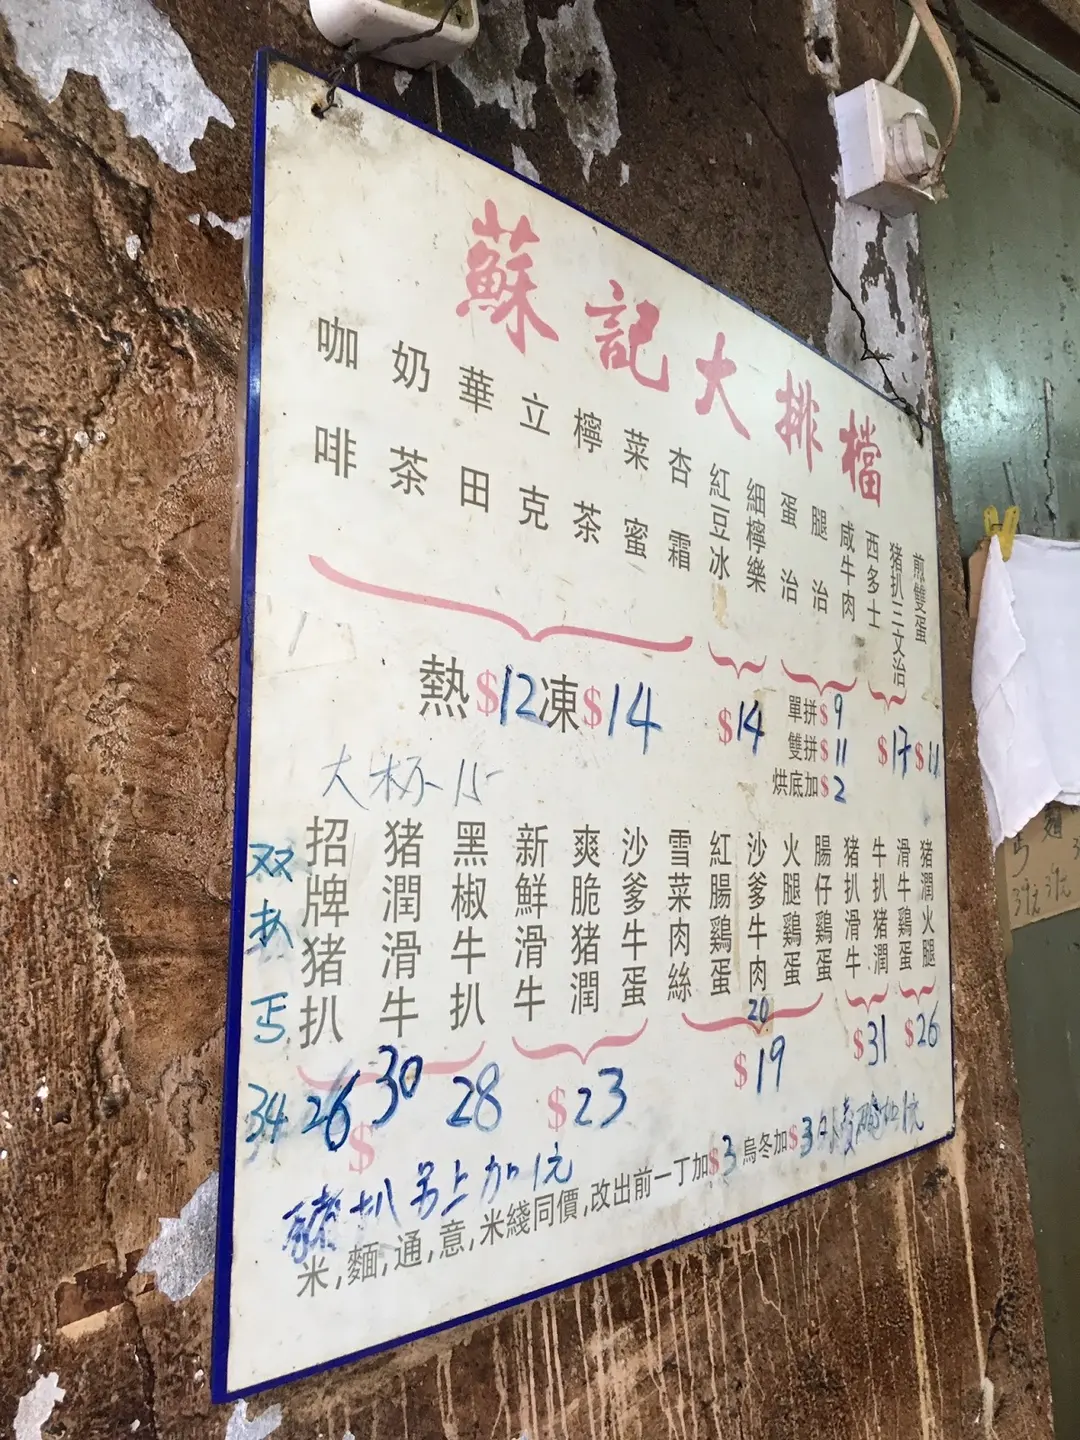 蘇記大排檔
咖啡
奶茶
華田
立克
檸茶
菜蜜
杏霜
紅豆冰
細檸樂
蛋治
腿治
咸牛肉
西多士
豬扒三文治
煎雙蛋
熱$12凍$14
$14
單拼$9
雙拼$11
烘底加$2
$17
$11
大杯 15
双
丐
招牌豬扒
豬潤滑牛
黑椒牛扒
新鮮滑牛
爽脆豬潤
沙爹牛蛋
雪菜肉絲
紅腸雞蛋
沙爹牛肉
火腿雞蛋
腸仔雞蛋
豬扒滑牛
牛扒豬潤
滑牛雞蛋
豬潤火腿
34
26
30
28
$
$23
20
$19
$31
$26
豬扒 另上加1元
米,麵,通,意,米綫同價,改出前一丁加$3 烏冬加$3 加1元